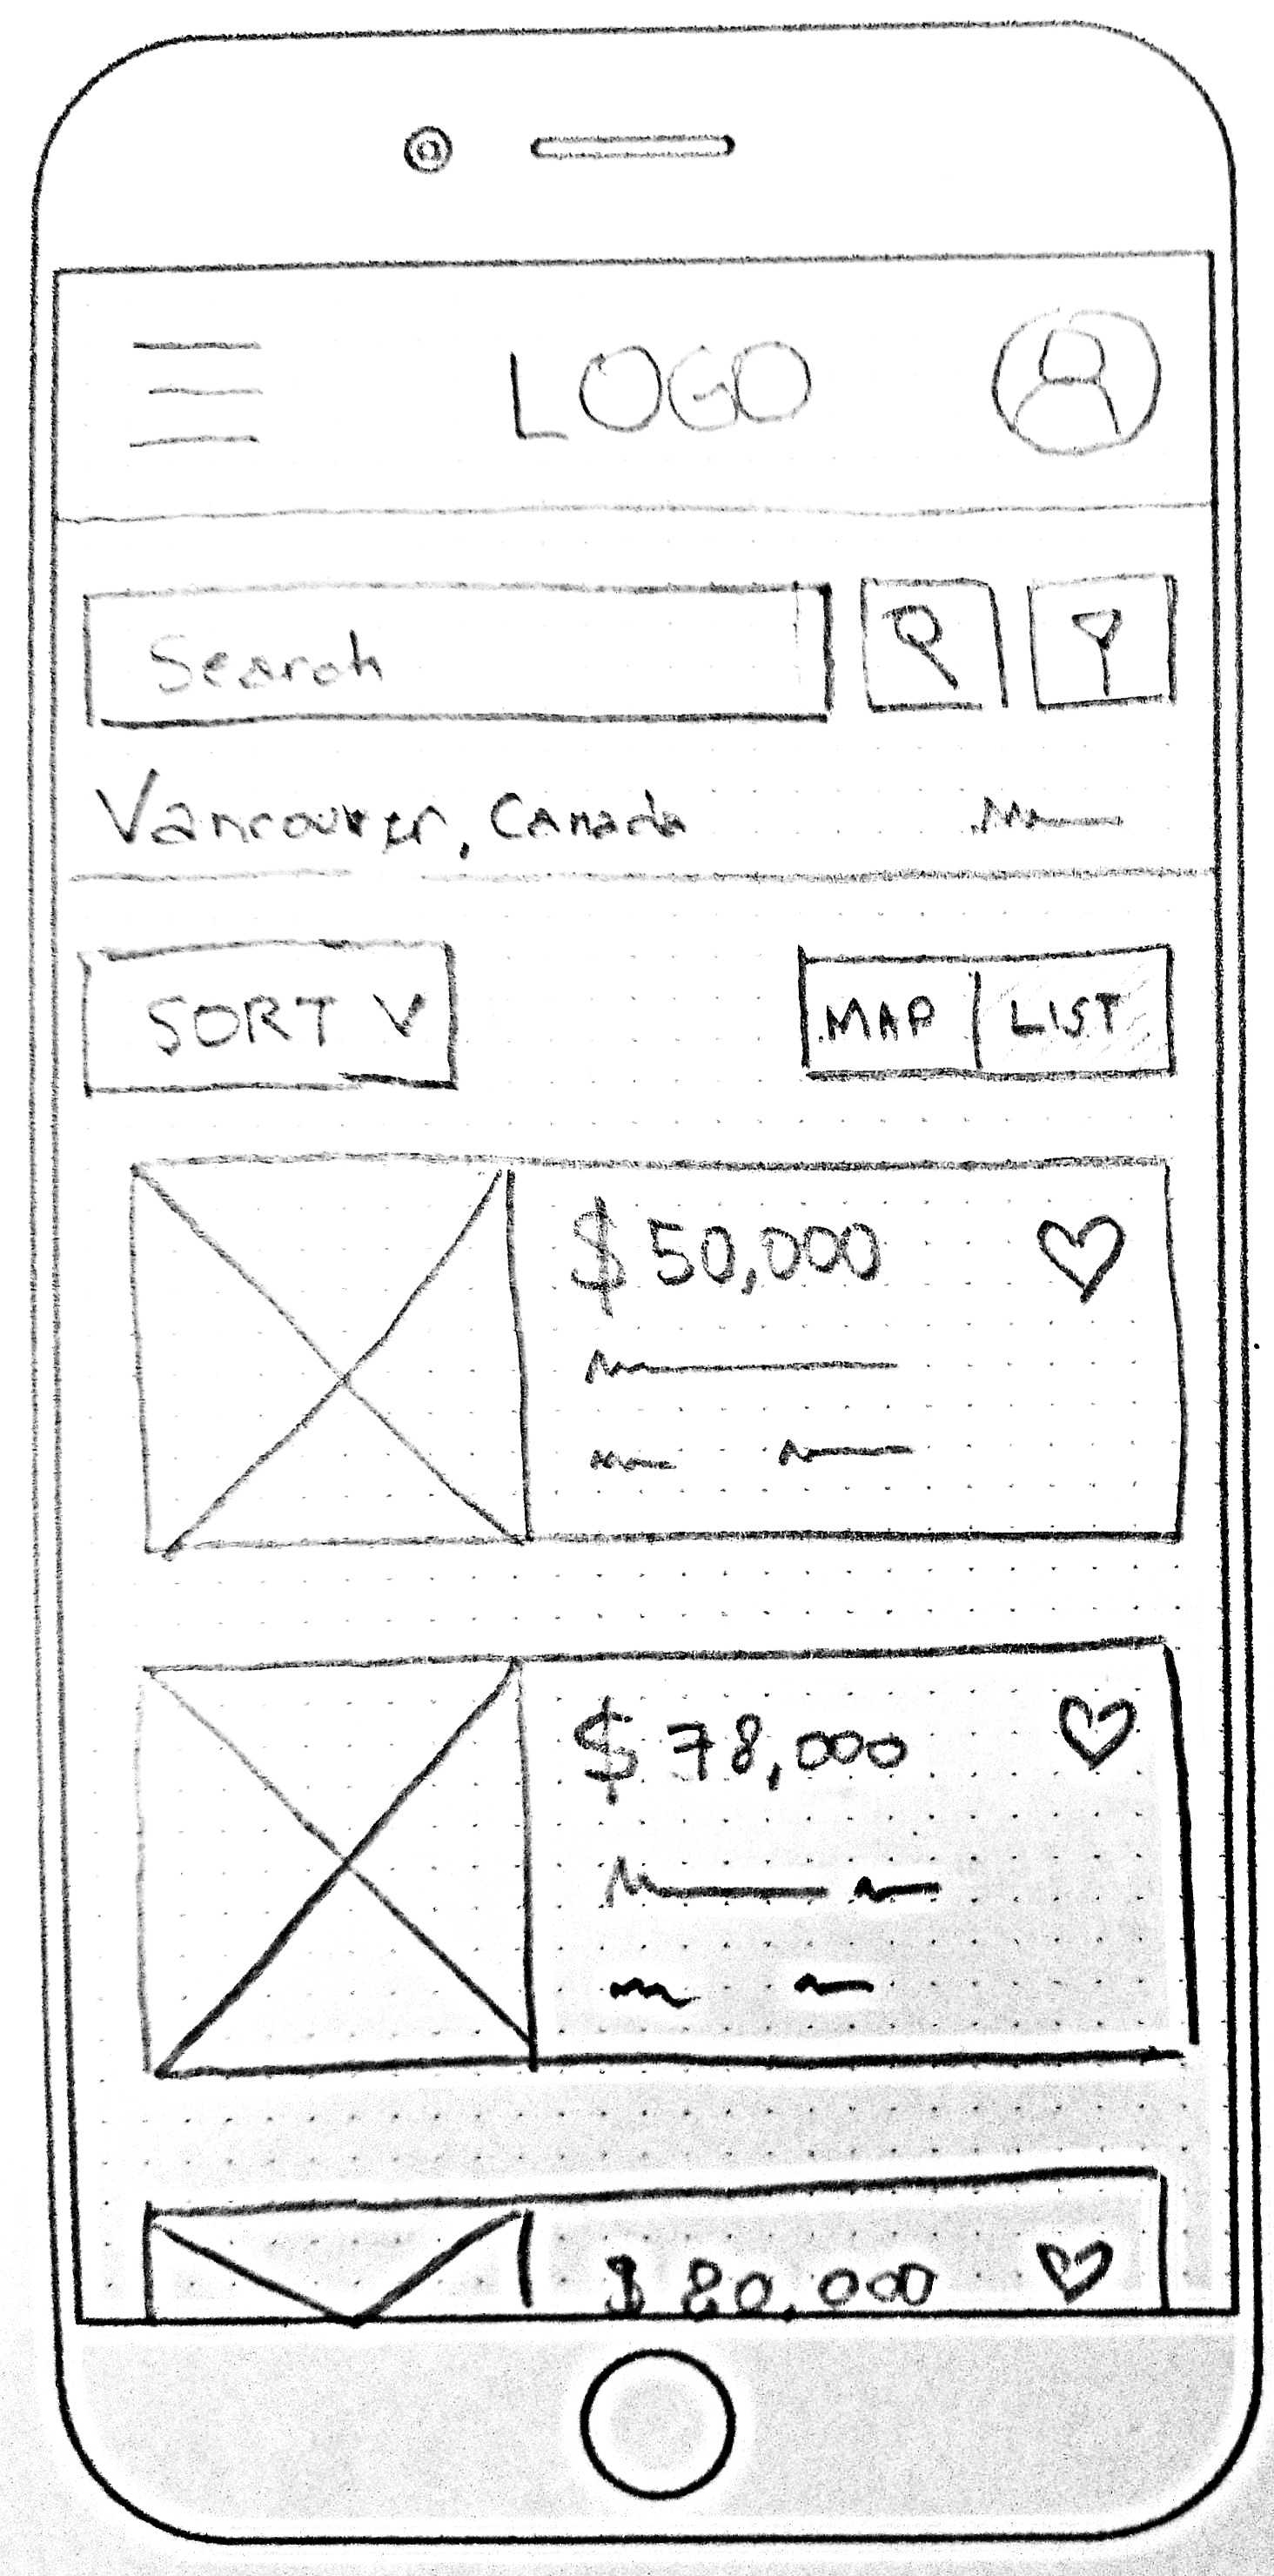 LOGO
Search
Vancouver, Canada
SORT
MAP LIST
$50,000
$78,000
$80,000